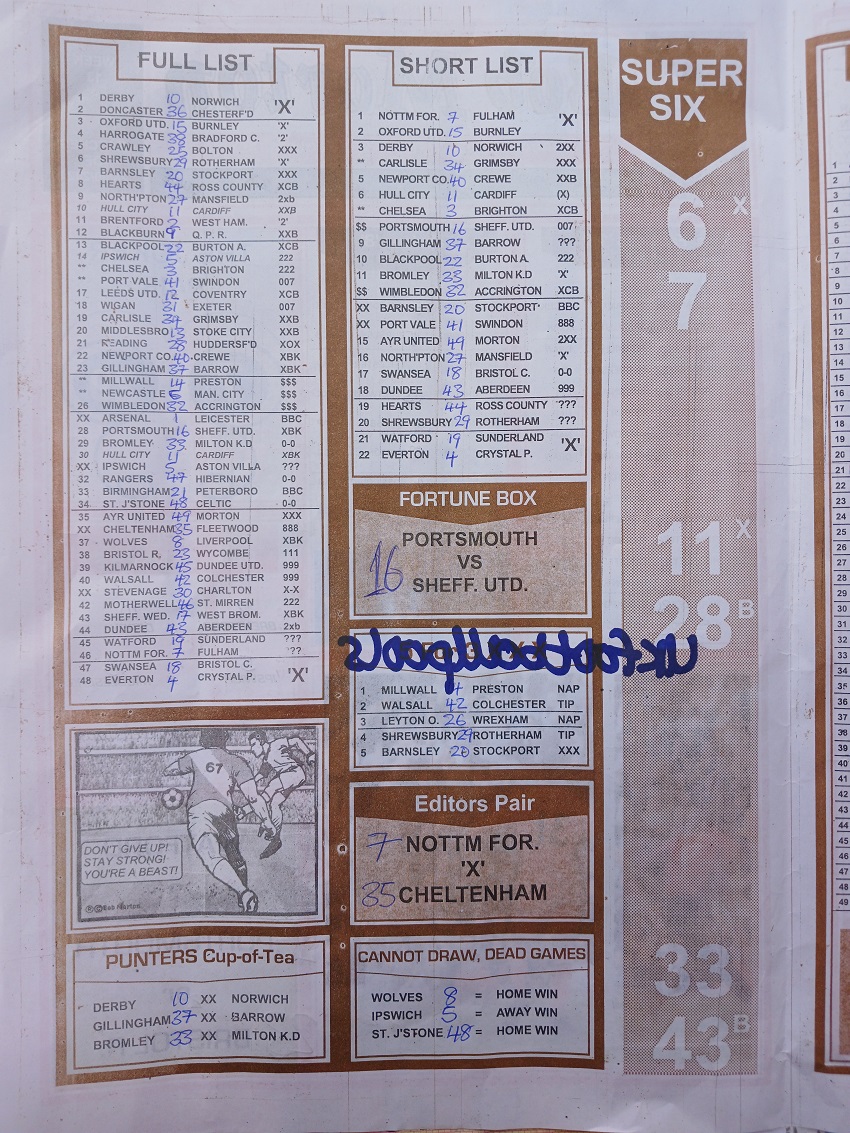 FULL LIST
1 DERBY 10 NORWICH 'X'
2 DONCASTER 36 CHESTERF'D
3 OXFORD UTD. 15 BURNLEY 'X'
4 HARROGATE 38 BRADFORD C. '2'
5 CRAWLEY 25 BOLTON XXX
6 SHREWSBURY 29 ROTHERHAM 'X'
7 BARNSLEY 20 STOCKPORT XXX
8 HEARTS 44 ROSS COUNTY XCB
9 NORTH'PTON 27 MANSFIELD 2xb
10 HULL CITY 11 CARDIFF XXB
11 BRENTFORD 2 WEST HAM. '2'
12 BLACKBURN 9 Q. P. R. XXB
13 BLACKPOOL 22 BURTON A. XCB
14 IPSWICH 5 ASTON VILLA 222
** CHELSEA 3 BRIGHTON 222
** PORT VALE 41 SWINDON 007
17 LEEDS UTD. 12 COVENTRY XCB
18 WIGAN 31 EXETER 007
19 CARLISLE 34 GRIMSBY XXB
20 MIDDLESBRO 13 STOKE CITY XXB
21 READING 28 HUDDERSF'D XOX
22 NEWPORT CO. 40 CREWE XBK
23 GILLINGHAM 37 BARROW XBK
** MILLWALL 14 PRESTON $$$
** NEWCASTLE 6 MAN. CITY $$$
26 WIMBLEDON 32 ACCRINGTON $$$
XX ARSENAL 1 LEICESTER BBC
28 PORTSMOUTH 16 SHEFF. UTD. XBK
29 BROMLEY 33 MILTON K.D 0-0
30 HULL CITY 11 CARDIFF XBK
XX IPSWICH 5 ASTON VILLA ???
32 RANGERS 47 HIBERNIAN 0-0
33 BIRMINGHAM 21 PETERBORO BBC
34 ST. J'STONE 48 CELTIC 0-0
35 AYR UNITED 49 MORTON XXX
XX CHELTENHAM 35 FLEETWOOD 888
37 WOLVES 8 LIVERPOOL XBK
38 BRISTOL R, 23 WYCOMBE 111
39 KILMARNOCK 45 DUNDEE UTD. 999
40 WALSALL 42 COLCHESTER 999
XX STEVENAGE 30 CHARLTON X-X
42 MOTHERWELL 46 ST. MIRREN 222
43 SHEFF. WED. 17 WEST BROM. XBK
44 DUNDEE 43 ABERDEEN 2xb
45 WATFORD 19 SUNDERLAND ???
46 NOTTM FOR. 7 FULHAM ??
47 SWANSEA 18 BRISTOL C. 'X'
48 EVERTON 4 CRYSTAL P.
67
DON'T GIVE UP!
STAY STRONG!
YOU'RE A BEAST!
PUNTERS Cup-of-Tea
DERBY 10 XX NORWICH
GILLINGHAM 37 XX BARROW
BROMLEY 33 XX MILTON K.D
SHORT LIST
1 NOTTM FOR. 7 FULHAM 'X'
2 OXFORD UTD. 15 BURNLEY
3 DERBY 10 NORWICH 2XX
** CARLISLE 34 GRIMSBY XXX
5 NEWPORT CO. 40 CREWE XXB
6 HULL CITY 11 CARDIFF (X)
** CHELSEA 3 BRIGHTON XCB
$$ PORTSMOUTH 16 SHEFF. UTD. 007
9 GILLINGHAM 37 BARROW ???
10 BLACKPOOL 22 BURTON A. 222
11 BROMLEY 33 MILTON K.D 'X'
$$ WIMBLEDON 32 ACCRINGTON XCB
XX BARNSLEY 20 STOCKPORT BBC
XX PORT VALE 41 SWINDON 888
15 AYR UNITED 49 MORTON 2XX
16 NORTH'PTON 27 MANSFIELD 'X'
17 SWANSEA 18 BRISTOL C. 0-0
18 DUNDEE 43 ABERDEEN 999
19 HEARTS 44 ROSS COUNTY ???
20 SHREWSBURY 29 ROTHERHAM ???
21 WATFORD 19 SUNDERLAND 'X'
22 EVERTON 4 CRYSTAL P.
FORTUNE BOX
PORTSMOUTH
16 VS
SHEFF. UTD.
ukfootballpools
1 MILLWALL 14 PRESTON NAP
2 WALSALL 42 COLCHESTER TIP
3 LEYTON O. 26 WREXHAM NAP
4 SHREWSBURY 29 ROTHERHAM TIP
5 BARNSLEY 20 STOCKPORT XXX
Editors Pair
7 NOTTM FOR.
'X'
35 CHELTENHAM
CANNOT DRAW, DEAD GAMES
WOLVES 8 = HOME WIN
IPSWICH 5 = AWAY WIN
ST. J'STONE 48 = HOME WIN
SUPER
SIX
6 X
7
11 X
28 B
33
43 B
1
2
3
4
5
6
7
8
9
10
11
12
13
14
15
16
17
18
19
20
21
22
23
24
25
26
27
28
29
30
31
32
33
34
35
36
37
38
39
40
41
42
43
44
45
46
47
48
49